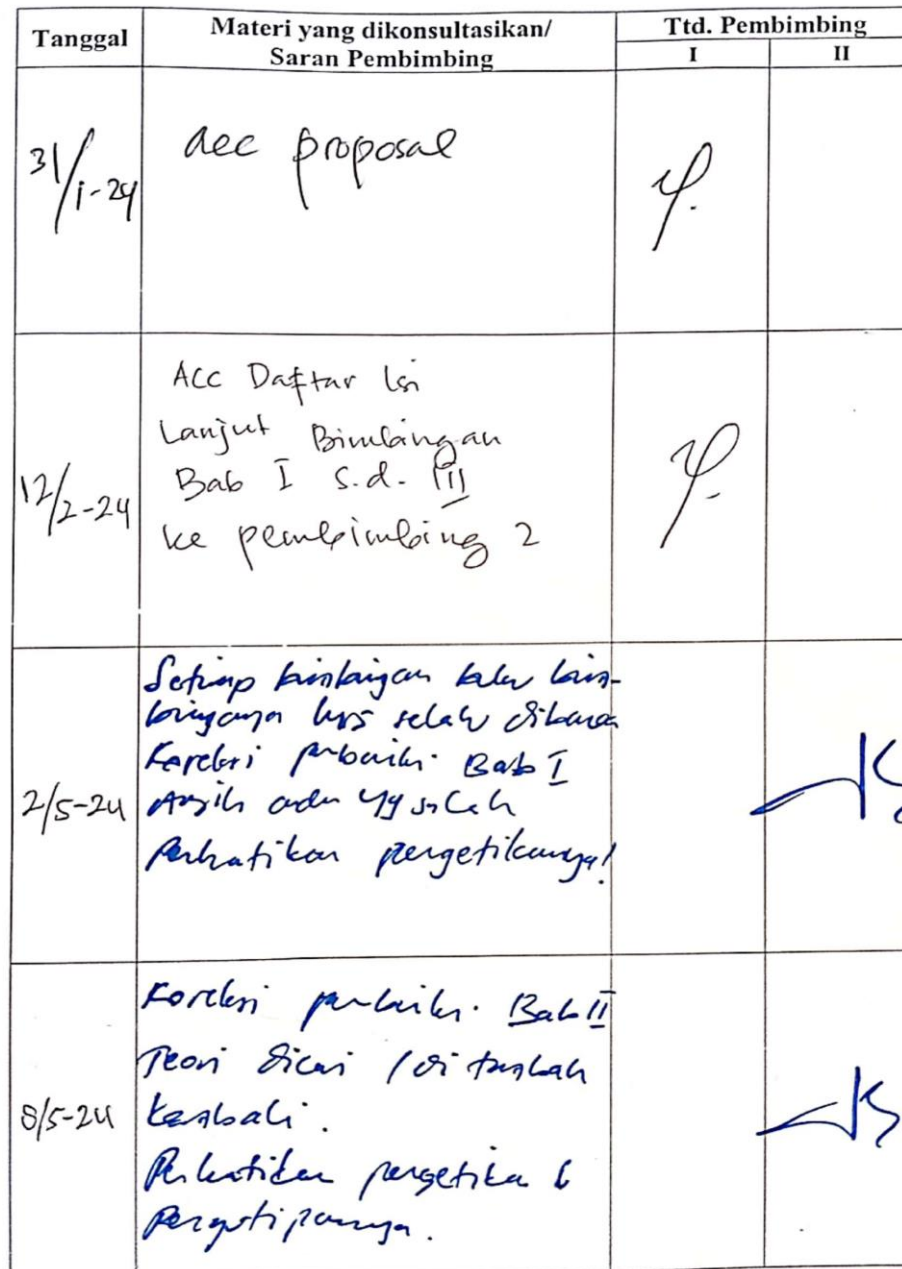 Tanggal
Materi yang dikonsultasikan/
Saran Pembimbing
Ttd. Pembimbing
I
II
31/1-24
acc proposal
12/2-24
ACC Daftar Isi
Lanjut Bimbingan
Bab I s.d. III
ke pembimbing 2
2/5-24
Setiap bimbingan buku bim-
bingannya hrs selalu dibawa
Koreksi perbaiki Bab I
Masih ada yg salah
Perhatikan pengetikannya!
8/5-24
Koreksi perbaiki. Bab II
Teori dicari / ditambah
kembali.
Perhatikan pengetikan &
Pengutipannya.